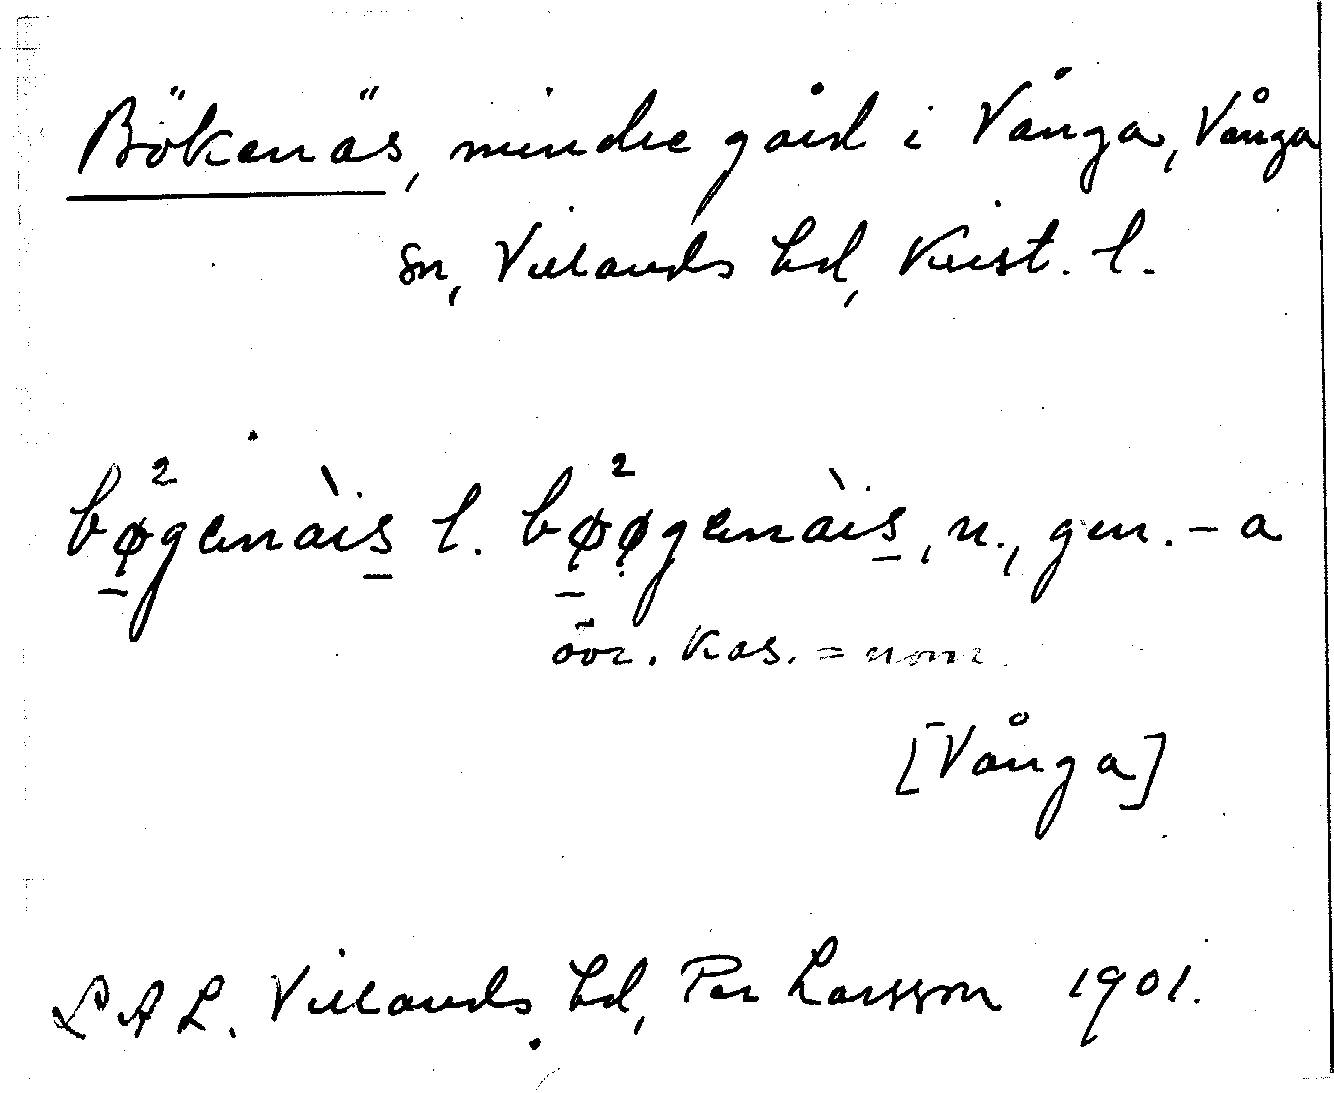 Bökenäs, mindre gård i Vånga, Vånga
sn, Villands hd, Krist. l.
bø̱²genàis̱ l. bø̱²øgenàis̱, n., gen. - a
övr. kas. = nom.
[Vånga]
L A L. Villands hd, Per Larsson 1901.